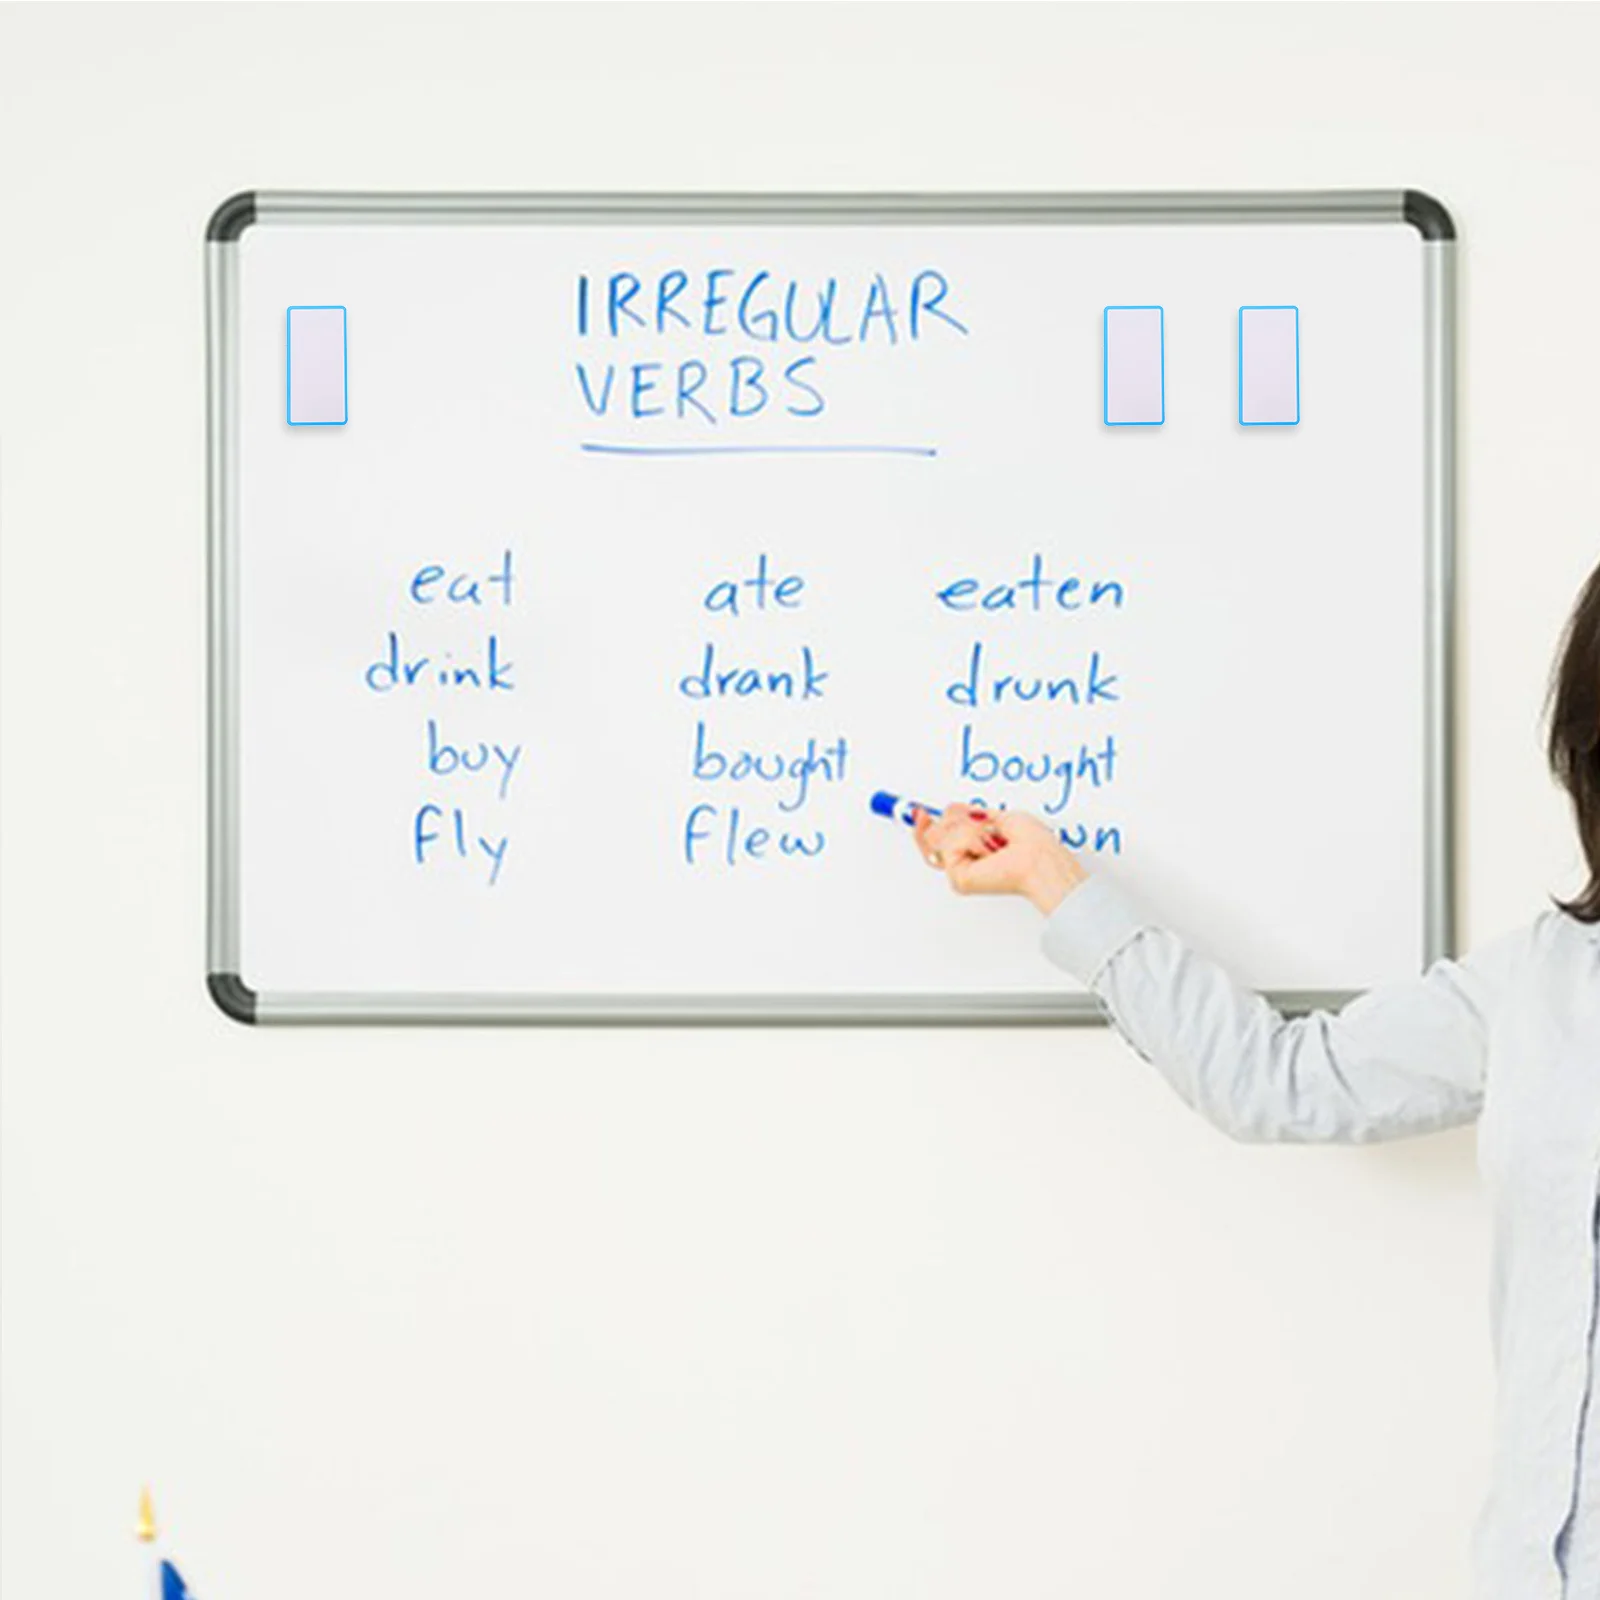 IRREGULAR
VERBS
eat ate eaten
drink drank drunk
buy bought bought
fly flew